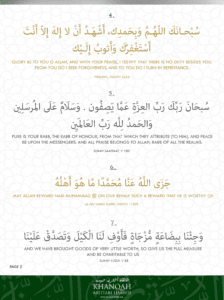 4.
سُبْحَانَكَ اللَّهُمَّ وَبِحَمْدِكَ، أَشْهَدُ أَنْ لَا إِلٰهَ إِلَّا أَنْتَ
أَسْتَغْفِرُكَ وَأَتُوبُ إِلَيْكَ
GLORY BE TO YOU O ALLAH, AND WITH YOUR PRAISE, I TESTIFY THAT THERE IS NO DEITY BESIDES YOU,
FROM YOU DO I SEEK FORGIVENESS, AND TO YOU DO I TURN IN REPENTANCE.
5.
سُبْحَانَ رَبِّكَ رَبِّ الْعِزَّةِ عَمَّا يَصِفُونَ . وَسَلَامٌ عَلَى الْمُرْسَلِينَ
وَالْحَمْدُ لِلَّهِ رَبِّ الْعَالَمِينَ
PURE IS YOUR RABB, THE RABB OF HONOUR, FROM THAT WHICH THEY ATTRIBUTE (TO HIM), AND PEACE
BE UPON THE MESSENGERS, AND ALL PRAISE BELONGS TO ALLAH, RABB OF ALL THE REALMS.
6.
جَزَى اللَّهُ عَنَّا مُحَمَّدًا مَا هُوَ أَهْلُهُ
MAY ALLAH REWARD NABI MUHAMMAD ON OUR BEHALF SUCH A REWARD THAT HE IS WORTHY OF
7.
وَجِئْنَا بِبِضَاعَةٍ مُزْجَاةٍ فَأَوْفِ لَنَا الْكَيْلَ وَتَصَدَّقْ عَلَيْنَا
AND WE HAVE BROUGHT GOODS OF VERY LITTLE WORTH, SO GIVE US THE FULL MEASURE
AND BE CHARITABLE TO US
PAGE 2
KHANQAH